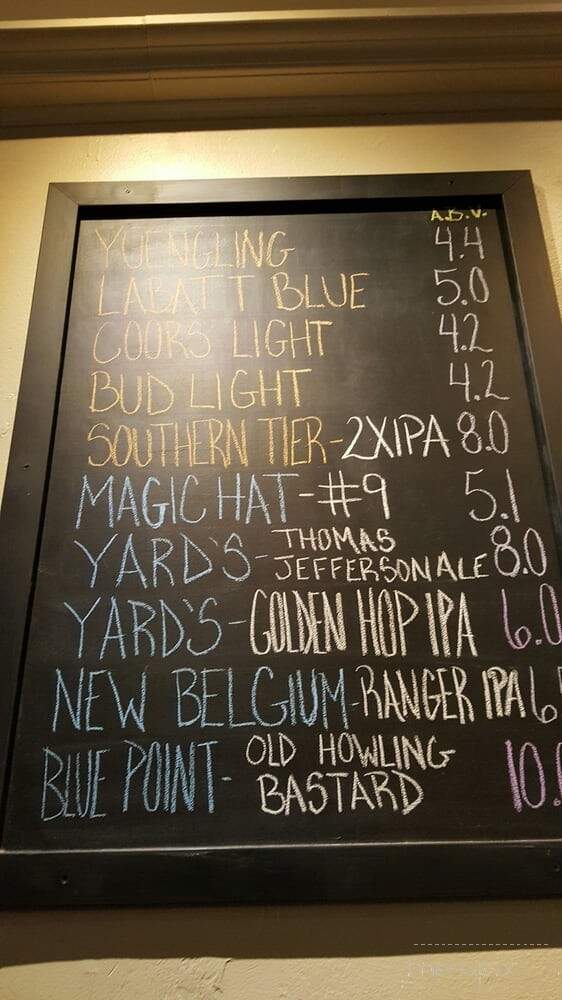 A.B.V.
YUENGLING 4.4
LABATT BLUE 5.0
COORS LIGHT 4.2
BUD LIGHT 4.2
SOUTHERN TIER-2XIPA 8.0
MAGIC HAT-#9 5.1
YARD'S- THOMAS JEFFERSON ALE 8.0
YARD'S-GOLDEN HOP IPA 6.0
NEW BELGIUM-RANGER IPA 6
BLUE POINT- OLD HOWLING BASTARD 10.